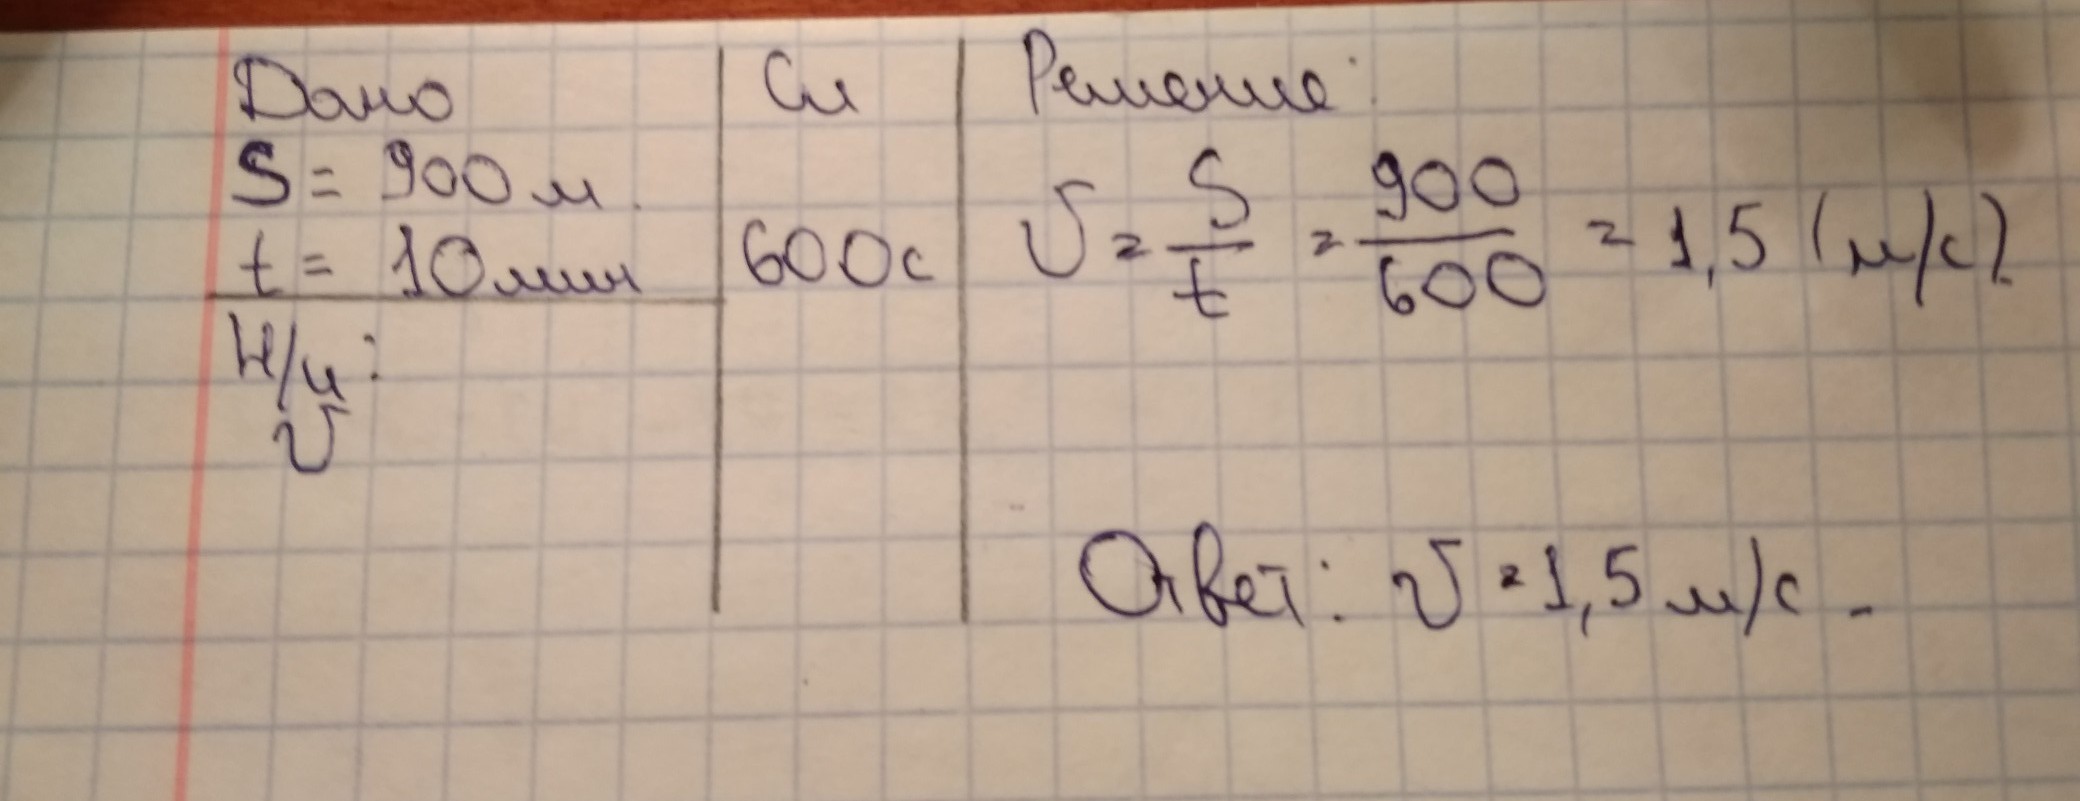 Дано
S = 900 м.
t = 10 мин
Н/и:
υ
Си
600 с
Решение:
υ = S/t = 900/600 = 1,5 (м/с).
Ответ: υ = 1,5 м/с.